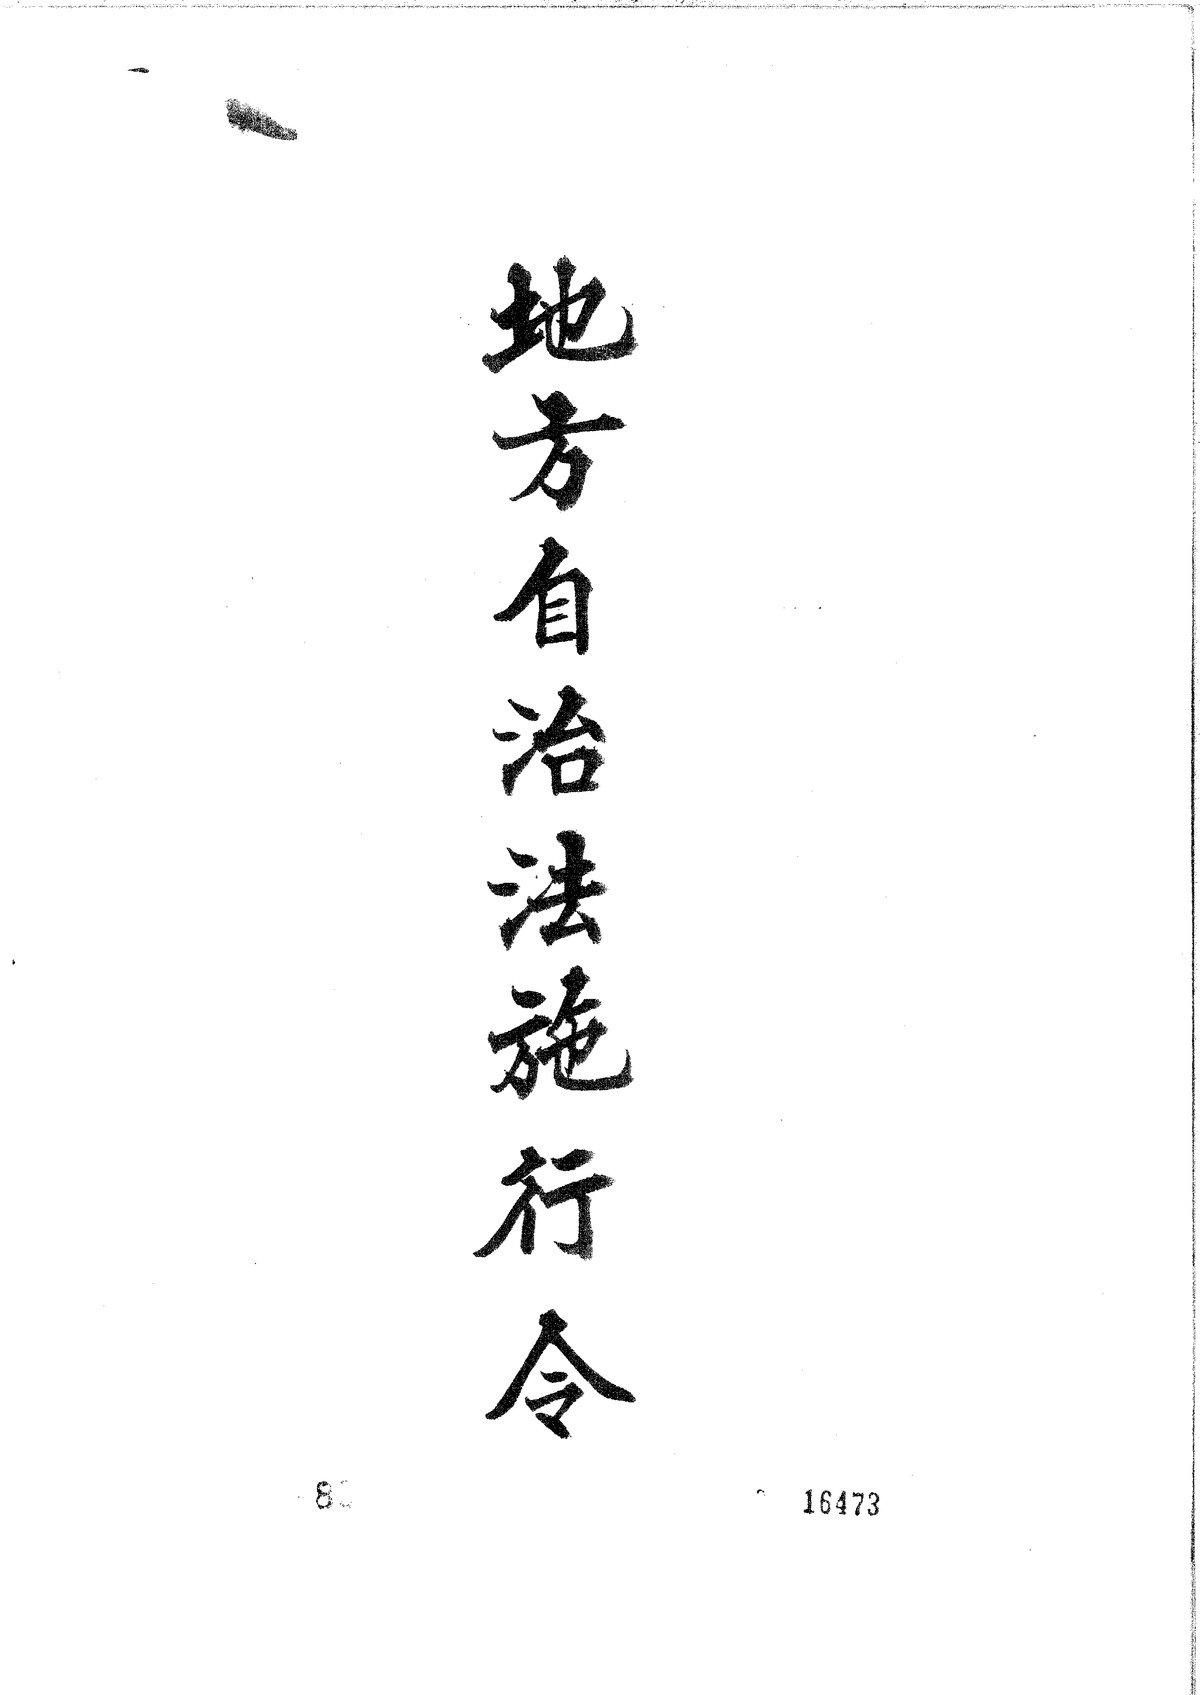 地方自治法施行令
8
16473